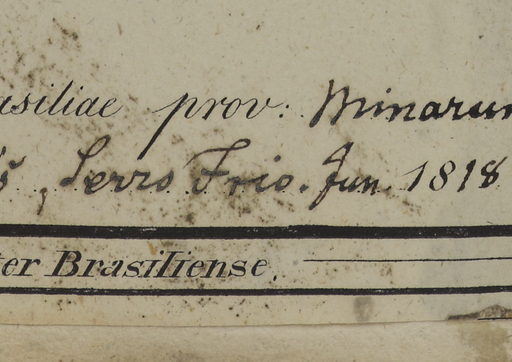 asiliae prov: Minarum
Serro Frio. Jun. 1818
ter Brasiliense.